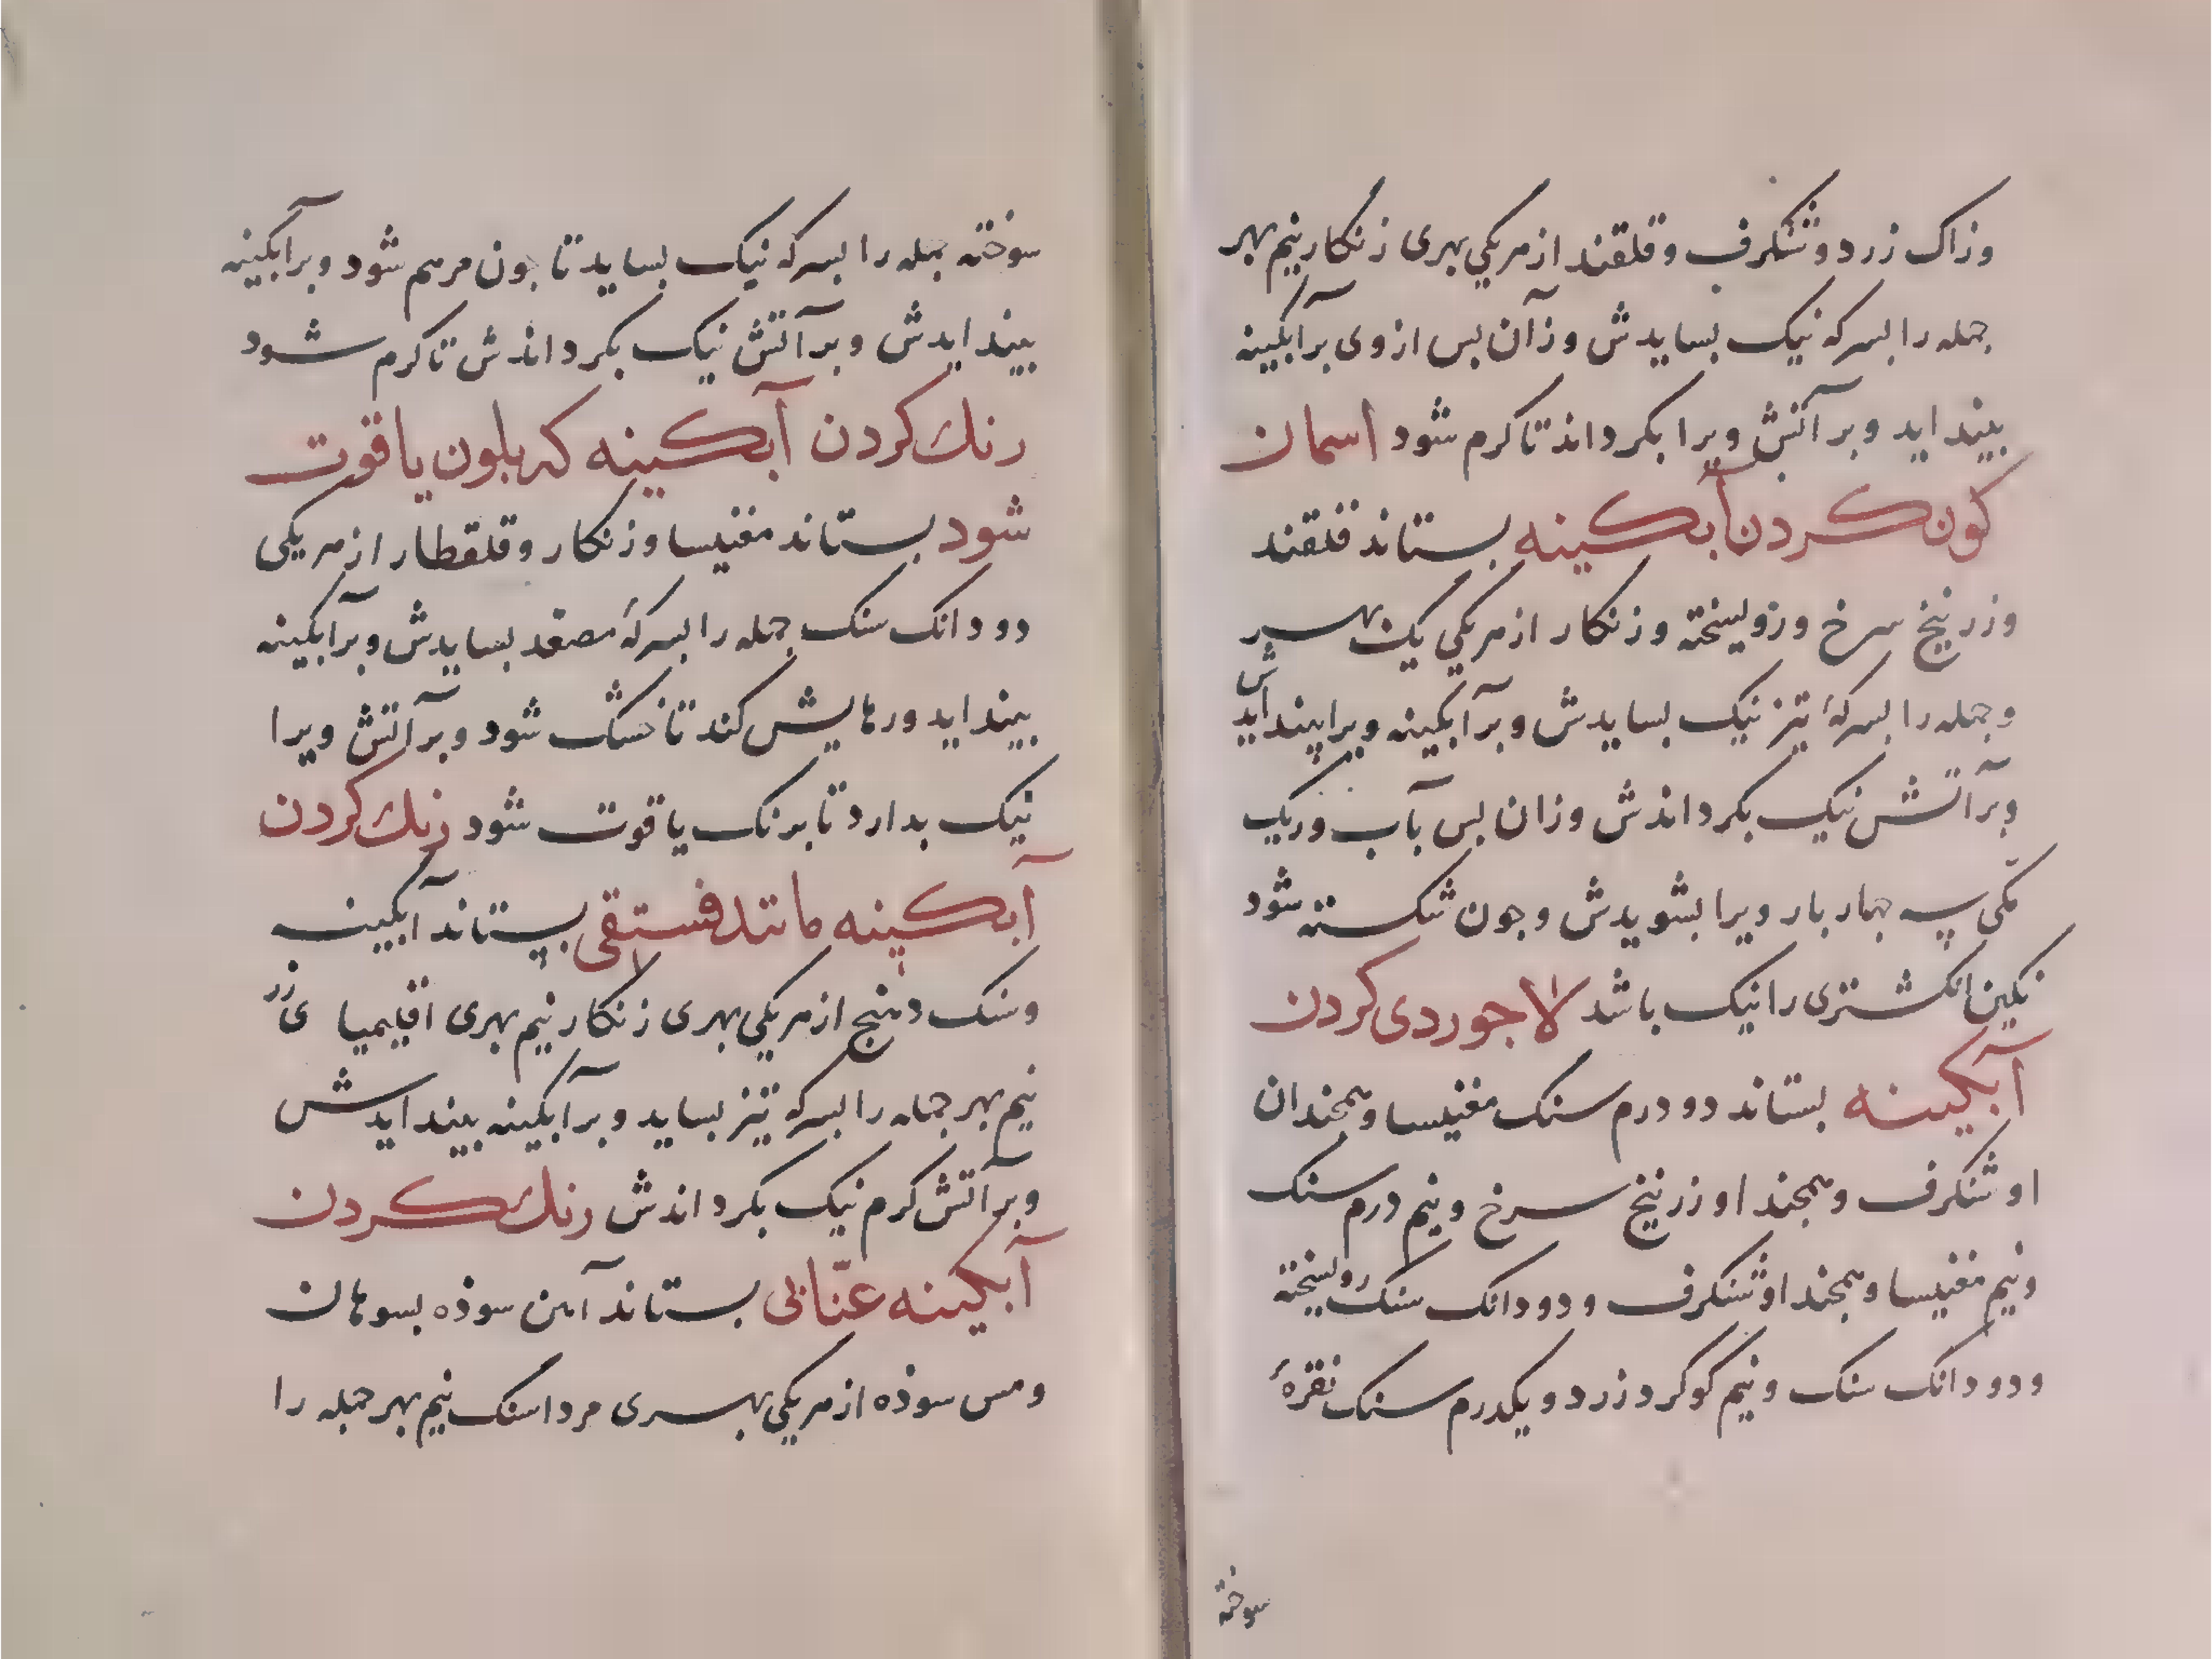 وزاک زرد و شنکرف وقلقند ازهریکی بهری زنکار نیم بهر
جمله را بسرکه نیک بسایدش وزآن بس ازوی برآبکینه
بینداید وبرآتش ویرا بکرداند تا کرم شود اسمان
کون کردن آبکینه بستاند قلقند
وزرنیخ سرخ وروسخته وزنکار ازهریکی یک بهر
وجمله را بسرکهٔ تیز نیک بسایدش وبرآبکینه ویرا بیندایدش
وبرآتش نیک بکرداندش وزان بس بآب وریک
مکی سه جهار بار ویرا بشویدش وجون شکسته شود
نکین انکشتری را نیک باشد لاجوردی کردن
آبکینه بستاند دو درم سنک مغنیسا وهمجندان
او شنکرف وهمجند او زرنیخ سرخ ونیم درم سنک
ونیم مغنیسا وهمجند او شنکرف ودودانک سنک روسخته
ودودانک سنک ونیم کوکرد زرد ویکدرم سنک نقرهٔ
سوخته
سوخته جمله را بسرکه نیک بساید تا جون مرهم شود وبرآبکینه
بیندایدش وبرآتش نیک بکرداندش تا کرم شود
رنك کردن آبکینه که بلون یاقوت
شود بستاند مغنیسا وزنکار وقلقطار ازهریکی
دودانک سنک جمله را بسرکهٔ مصعد بسایدش وبرآبکینه
بینداید ورهایش کند تا خشک شود وبرآتش ویرا
نیک بدارد تا برنک یاقوت شود رنك کردن
آبکینه مانند فستقی بستاند آبکینه
وسنک دهنج ازهریکی بهری زنکار نیم بهری اقلیمیا ی زر
نیم بهر جمله را بسرکه تیز بساید وبرآبکینه بیندایدش
وبرآتش کرم نیک بکرداندش رنك کردن
آبکینه عنّابی بستاند آهن سوذه بسوهان
ومس سوذه ازهریکی بهری مرداسنک نیم بهر جمله را